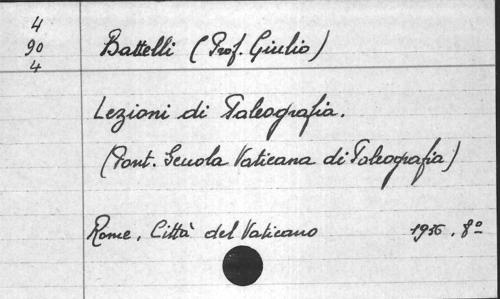 4
90
4
Battelli (Prof. Giulio)
Lezioni di Paleografia.
(Pont. Scuola Vaticana di Paleografia)
Rome, Città del Vaticano 1936. 8º